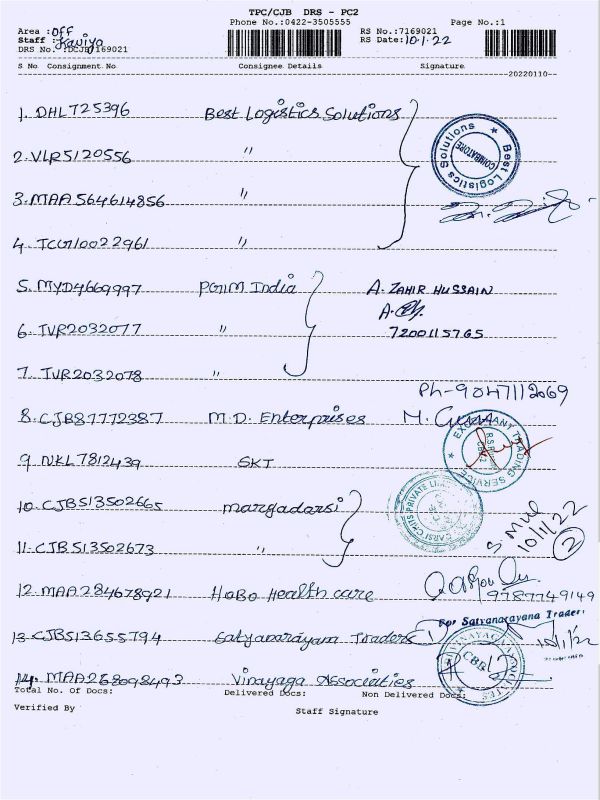 TPC/CJB DRS - PC2
Phone No.:0422-3505555 Page No.:1
Area : OFF RS No.:7169021
Staff : Kaviya RS Date: 10.1.22
DRS No. :DCJB7169021
S No Consignment No Consignee Details Signature
20220110
1. DHL725396 Best Logistics Solutions
Best Logistics Solutions COIMBATORE
2. VLR5120556 "
3. MAA564614856 "
4. TCG110022961 "
5. MYD4669997 PGIM India A. ZAHIR HUSSAIN
6. TVR2032077 " 7200115765
7. TVR2032078 "
Ph-9047112069
8. CJB87772387 M.D. Enterprises
TRADING SERVICE
9. NKL7812439 GKT
10. CJB513502665 margadarsi
CHITS PRIVATE
10/11/22
2
11. CJB513502673 "
12. MAA284678921 HoBo Healthcare 9787749149
For Satyanarayana Traders
13. CJB513655794 Satyanarayana Traders
VINAYAGA ASSOCIATES
14. MAA268098493 Vinayaga Associaties
Total No. Of Docs: Delivered Docs: Non Delivered Docs:
Verified By Staff Signature